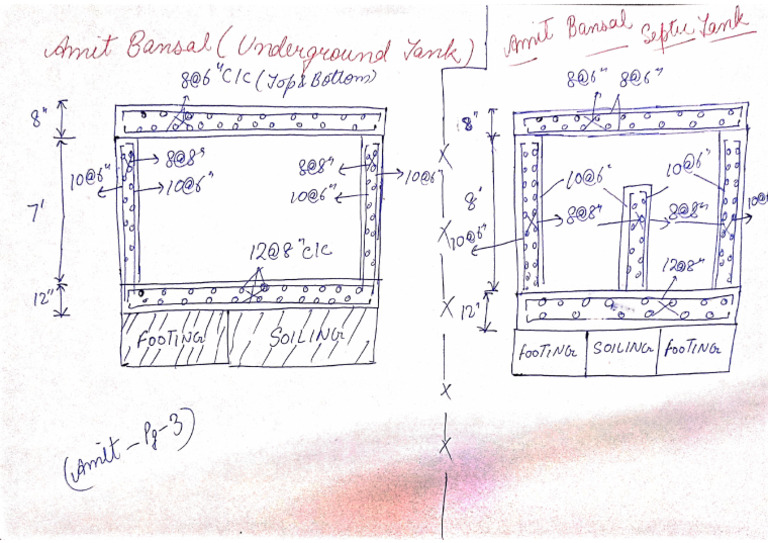 Amit Bansal (Underground Tank)
8@6" C/C (Top & Bottom)
8"
10@6"
8@8"
10@6"
8@8"
10@6"
10@6
7'
12@8" C/C
12"
FOOTING
SOILING
(Amit - Pg-3)
Amit Bansal Septic Tank
8@6" 8@6"
8"
10@6"
10@6"
8'
8@8"
8@8"
10@6"
12@8"
12"
FOOTING
SOILING
FOOTING